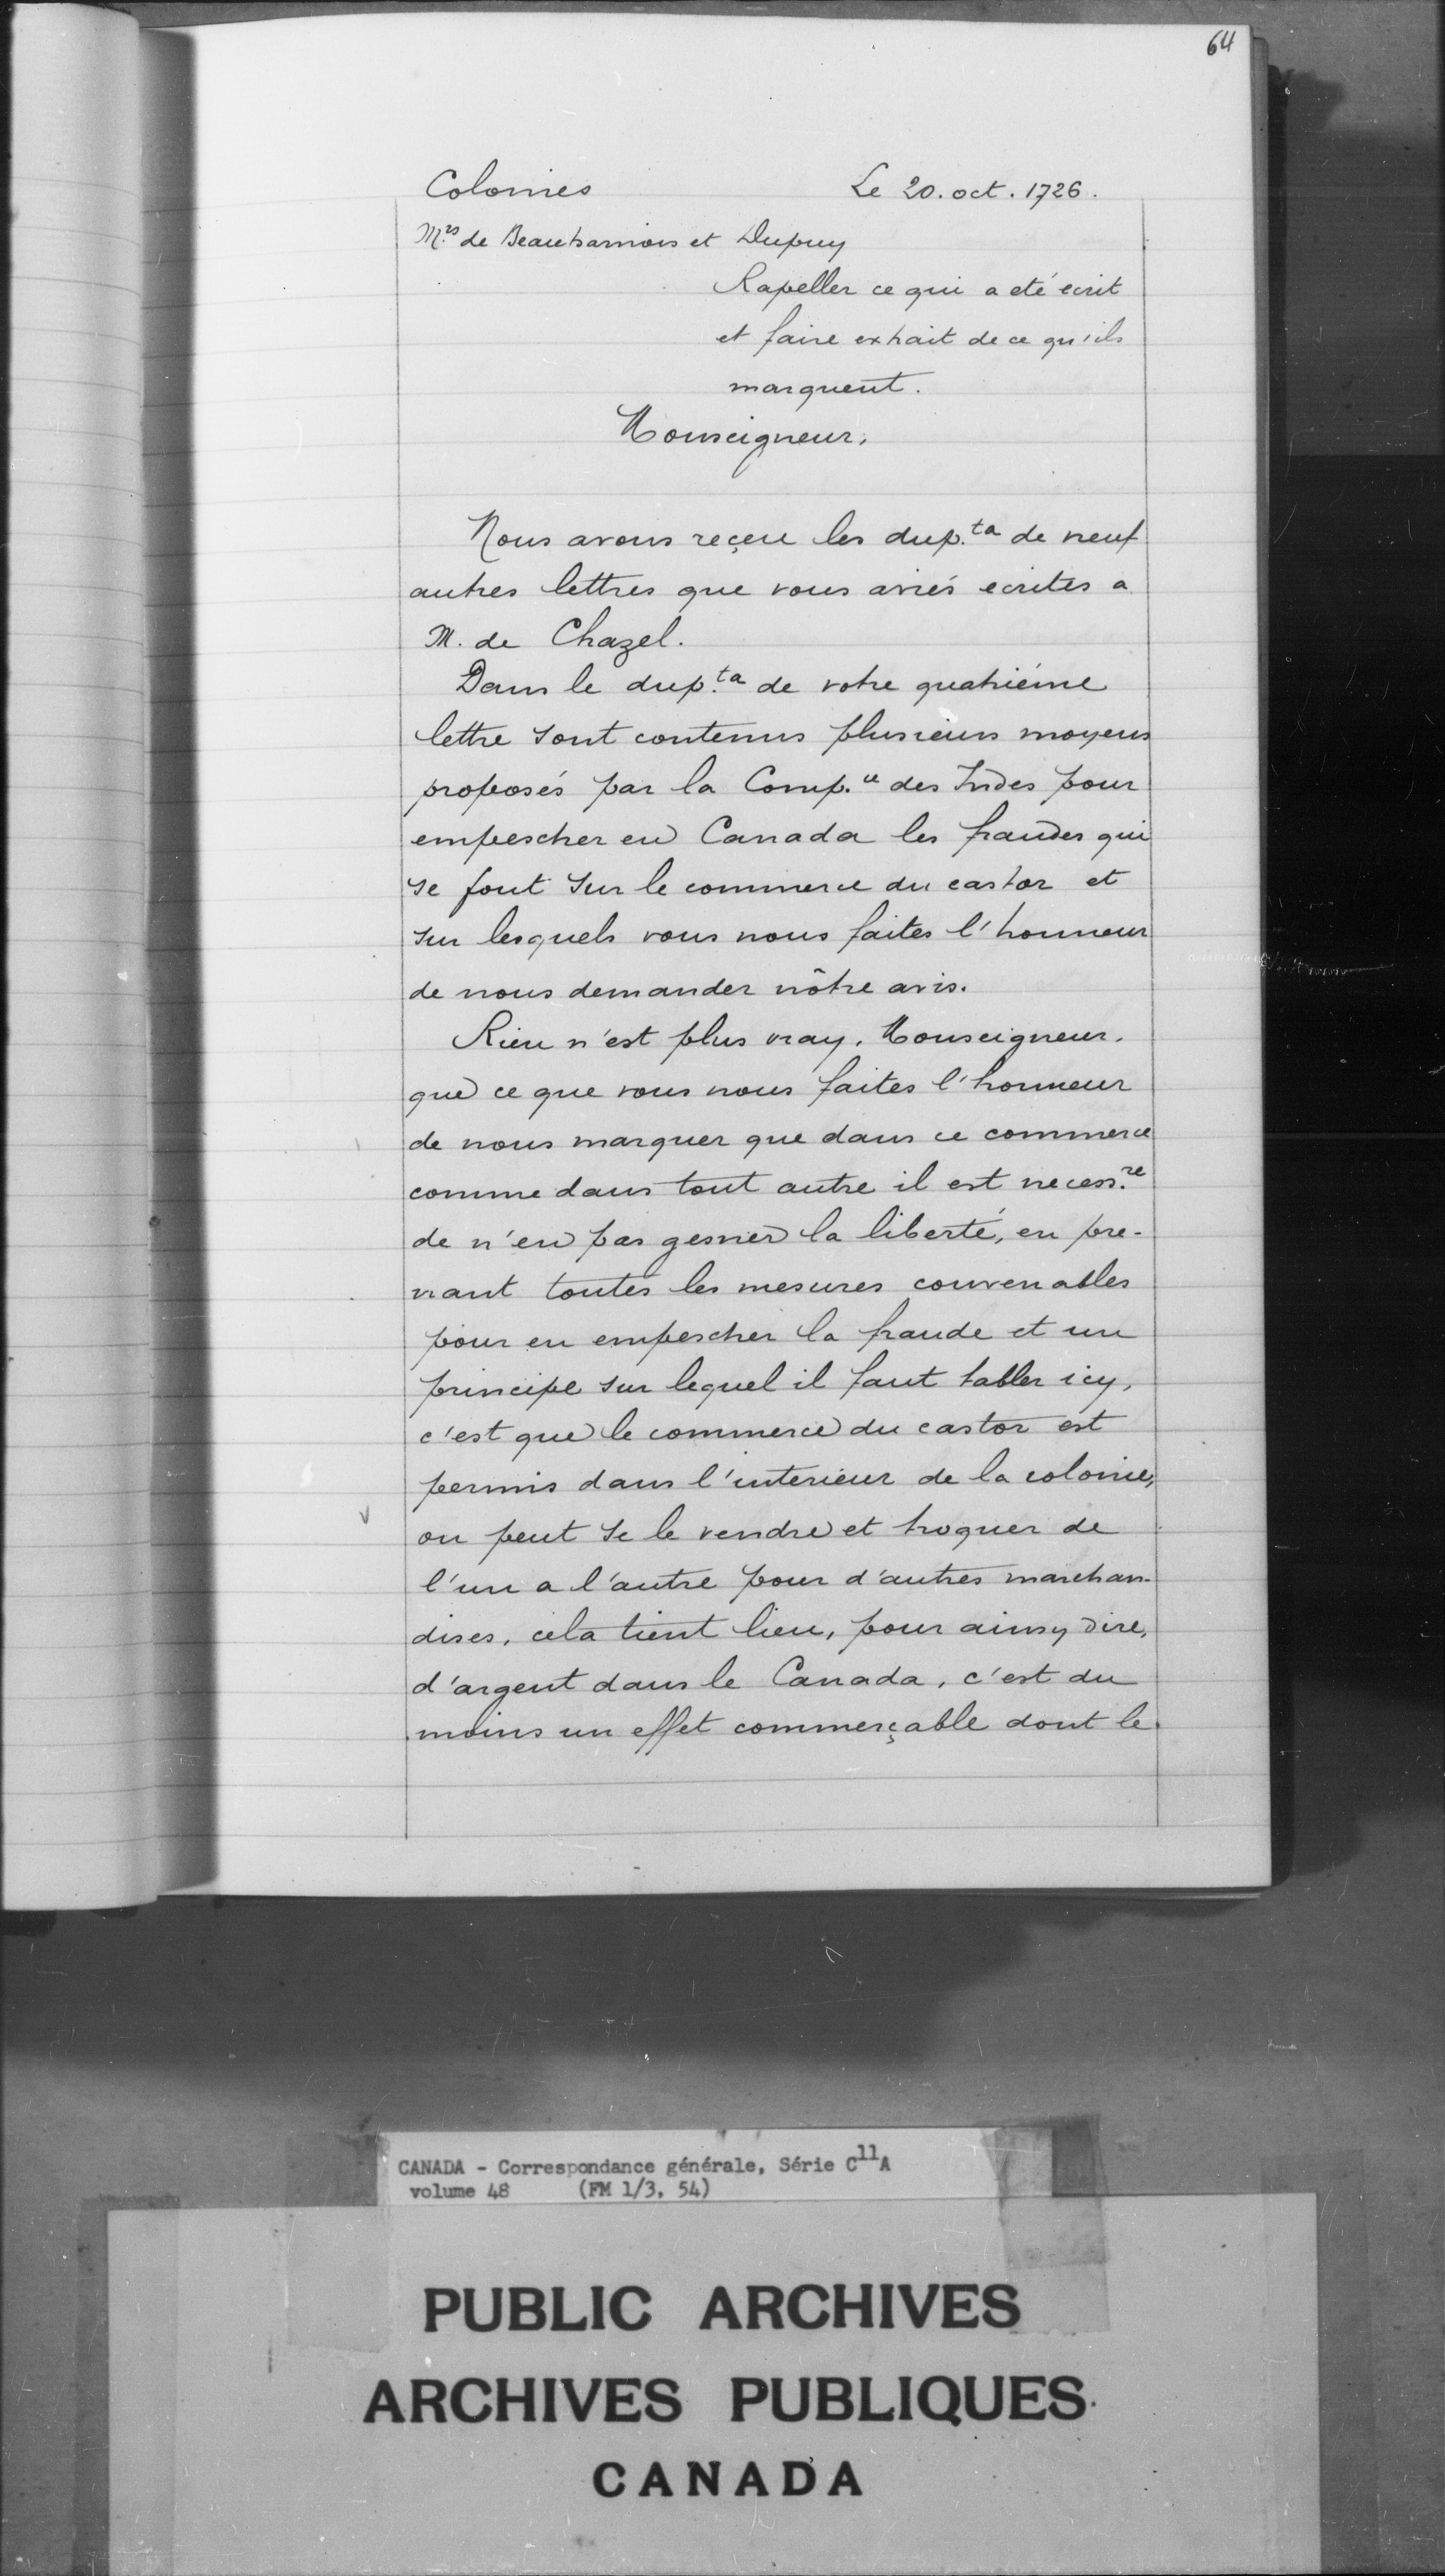 64
Colonies Le 20. oct. 1726.
M.rs de Beauharnois et Dupuy
Rapeller ce qui a eté écrit
et faire extrait de ce qu'ils
marquent.
Monseigneur,
Nous avons reçeu les dup.ta de neuf
autres lettres que vous aviés ecrites a
M. de Chazel.
Dans le dup.ta de votre quatriéme
lettre sont contenus plusieurs moyens
proposés par la Comp.ie des Indes pour
empescher en Canada les fraudes qui
se font sur le commerce du castor et
sur lesquels vous nous faites l'honneur
de nous demander nôtre avis.
Rien n'est plus vray, Monseigneur,
que ce que vous nous faites l'honneur
de nous marquer que dans ce commerce
comme dans tout autre il est necess.re
de n'en pas gesner la liberté, en pre-
nant toutes les mesures convenables
pour en empescher la fraude et un
principe sur lequel il faut tabler icy,
c'est que le commerce du castor est
permis dans l'interieur de la colonie,
on peut se le vendre et troquer de
l'un a l'autre pour d'autres marchan-
dises, cela tient lieu, pour ainsy dire,
d'argent dans le Canada, c'est du
moins un effet commerçable dont le
CANADA - Correspondance générale, Série C11A
volume 48 (FM 1/3, 54)
PUBLIC ARCHIVES
ARCHIVES PUBLIQUES
CANADA